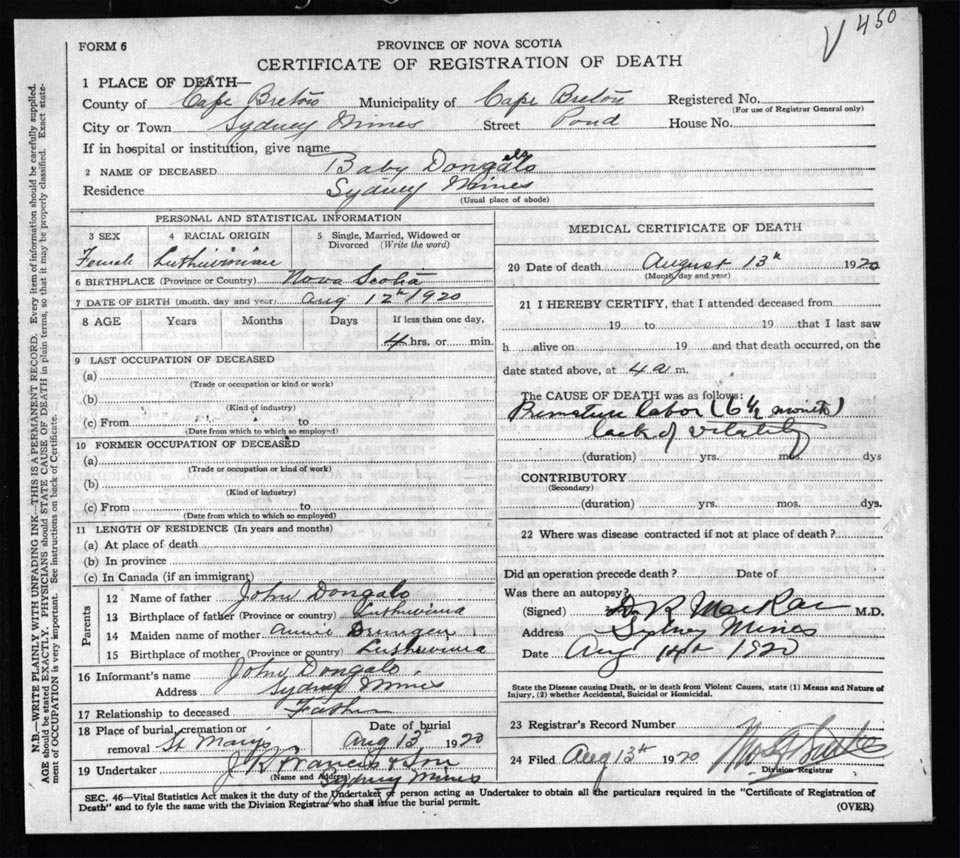 V 450
FORM 6
PROVINCE OF NOVA SCOTIA
CERTIFICATE OF REGISTRATION OF DEATH
1 PLACE OF DEATH—
County of Cape Breton Municipality of Cape Breton Registered No.
(For use of Registrar General only)
City or Town Sydney Mines Street Pond House No.
If in hospital or institution, give name
2 NAME OF DECEASED Baby Dongalo els
Residence Sydney Mines
(Usual place of abode)
PERSONAL AND STATISTICAL INFORMATION
3 SEX 4 RACIAL ORIGIN 5 Single, Married, Widowed or Divorced (Write the word)
Female Luthuvinian
6 BIRTHPLACE (Province or Country) Nova Scotia
7 DATE OF BIRTH (month, day and year) Aug 12th 1920
8 AGE Years Months Days If less than one day,
4 hrs. or min.
9 LAST OCCUPATION OF DECEASED
(a)
(Trade or occupation or kind or work)
(b)
(Kind of industry)
(c) From to
(Date from which to which so employed)
10 FORMER OCCUPATION OF DECEASED
(a)
(Trade or occupation or kind of work)
(b)
(Kind of industry)
(c) From to
(Date from which to which so employed)
11 LENGTH OF RESIDENCE (In years and months)
(a) At place of death
(b) In province
(c) In Canada (if an immigrant)
Parents
12 Name of father John Dongalo
13 Birthplace of father (Province or country) Luthuvinia
14 Maiden name of mother Annie
15 Birthplace of mother (Province or country) Luthuvinia
16 Informant's name John Dongalo
Address Sydney Mines
17 Relationship to deceased Father
18 Place of burial, cremation or removal St Mary's Date of burial Aug 13, 1920
19 Undertaker J R Francis & Son
(Name and Address) Sydney Mines
MEDICAL CERTIFICATE OF DEATH
20 Date of death August 13th 1920
(Month, day and year)
21 I HEREBY CERTIFY, that I attended deceased from
19 to 19 that I last saw
h alive on 19 and that death occurred, on the
date stated above, at 4 a m.
The CAUSE OF DEATH was as follows:
Premature labor (6½ months)
lack of vitality
(duration) yrs. mos. dys
CONTRIBUTORY
(Secondary)
(duration) yrs. mos. dys.
22 Where was disease contracted if not at place of death?
Did an operation precede death? Date of
Was there an autopsy?
(Signed) R MacRae M.D.
Address Sydney Mines
Date Aug 14th 1920
State the Disease causing Death, or in death from Violent Causes, state (1) Means and Nature of
Injury, (2) whether Accidental, Suicidal or Homicidal.
23 Registrar's Record Number
24 Filed Aug 13th 1920
Division Registrar
SEC. 46—Vital Statistics Act makes it the duty of the Undertaker or person acting as Undertaker to obtain all the particulars required in the "Certificate of Registration of
Death" and to fyle the same with the Division Registrar who shall issue the burial permit. (OVER)
N.B.—WRITE PLAINLY WITH UNFADING INK—THIS IS A PERMANENT RECORD. Every item of information should be carefully supplied.
AGE should be stated EXACTLY, PHYSICIANS should STATE CAUSE OF DEATH in plain terms, so that it may be properly classified. Exact state-
ment of OCCUPATION is very important. See instructions on back of Certificate.